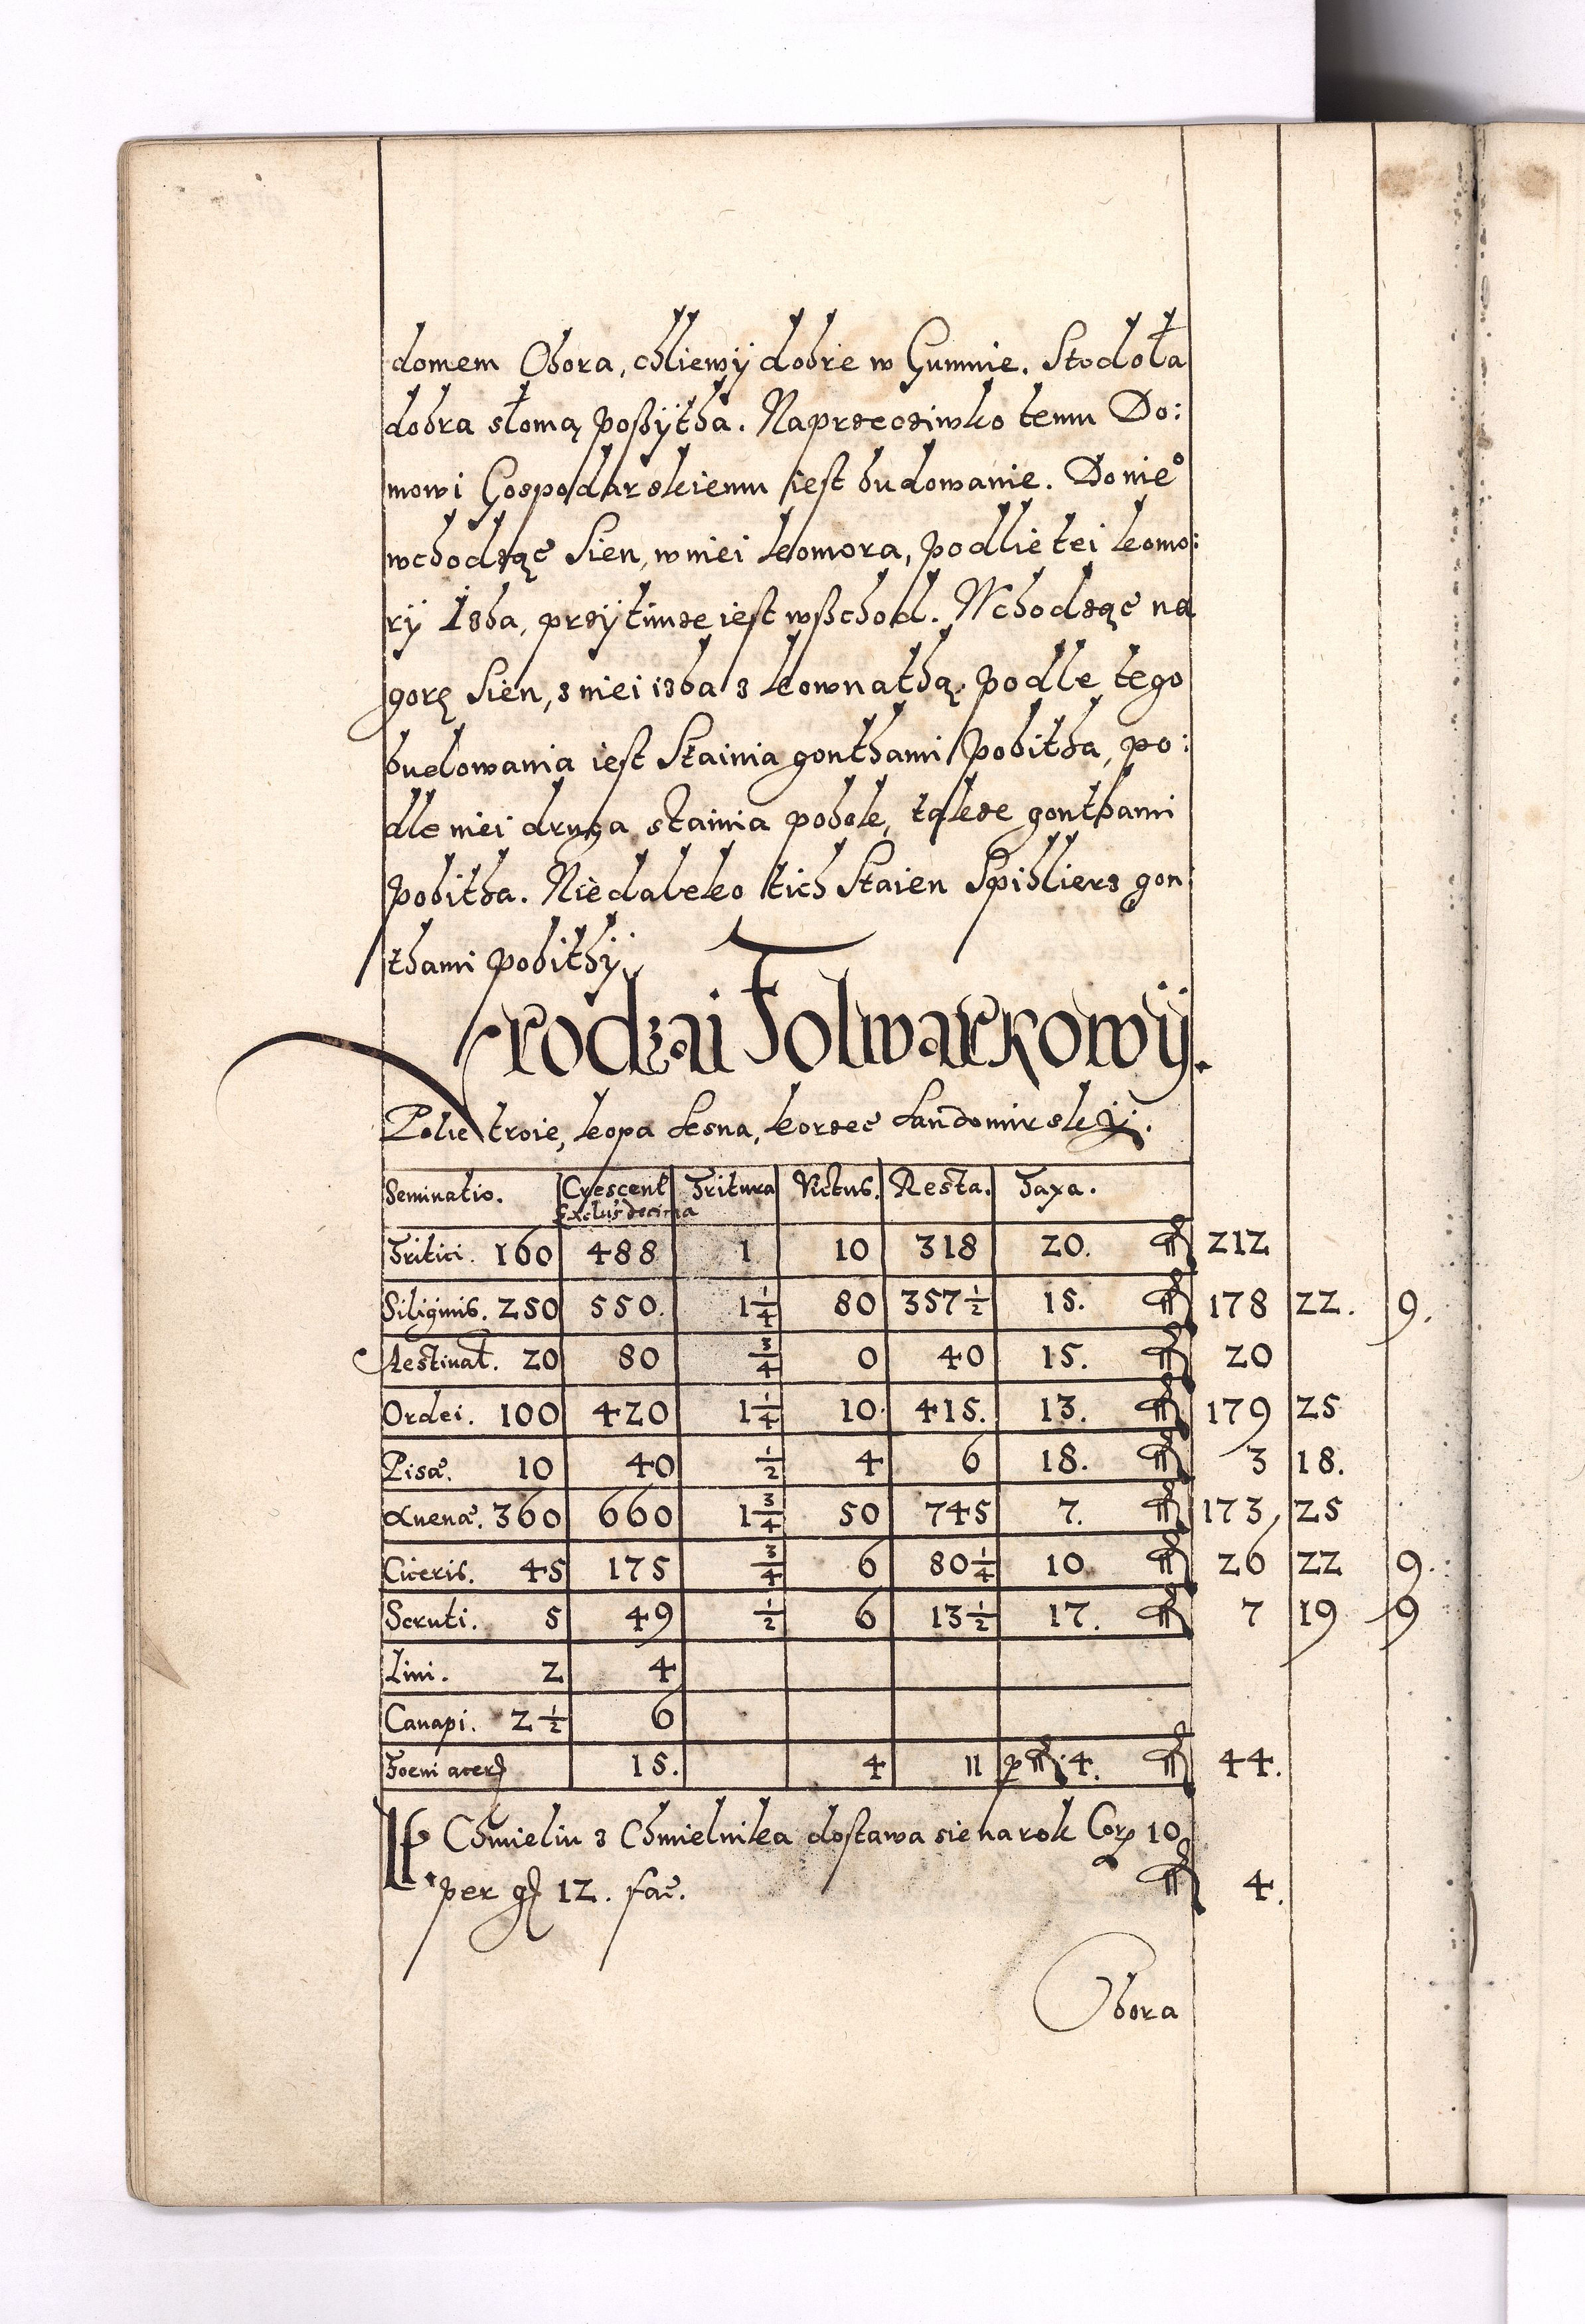 domem Obora, chliewÿ dobre w Gumnie. Stodoła
dobra słomą poßÿtha. Naprzeciwko temu Do:
mowi Gospodarskiemu iest budowanie. Do nie°
wchodząc Sien, w niei komora, podlie tei komo:
rÿ Izba, przÿ timze iest wßchod. Wchodząc na
gorę Sien, z niei izba z kownathą. podle tego
budowania iest Stainia gonthami pobitha, po:
dle niei druga stainia pobok, takze gonthami
pobitha. Niedaleko tich Staien Spihlierz gon:
thami pobithÿ.
Urodzai Folwarkowÿ.
Polie troie, kopa Lesna, korzec Sandomirskÿ.
Seminatio. Crescent Exclus decima Tritura Victus. Resta. Taxa.
Tritici. 160 488 1 10 318 20. fl 212
Siliginis. 250 550. 1 1/4 80 357 1/2 15. fl 178 22. 9.
Aestivat. 20 80 3/4 0 40 15. fl 20
Ordei. 100 420 1 1/4 10. 415. 13. fl 179 25
Pisæ. 10 40 1/2 4 6 18. fl 3 18.
Avenæ. 360 660 1 3/4 50 745 7. fl 173 25
Ciceris. 45 175 3/4 6 80 1/4 10 fl 26 22 9.
Scruti. 5 49 1/2 6 13 1/2 17. fl 7 19 9
Lini. 2 4
Canapi. 2 1/2 6
Foeni acer 15. 4 11 p fl. 4. fl 44.
It Chmieliu z Chmielnika dostawa sie na rok Cor 10
per g 12. fac. fl 4.
Obora